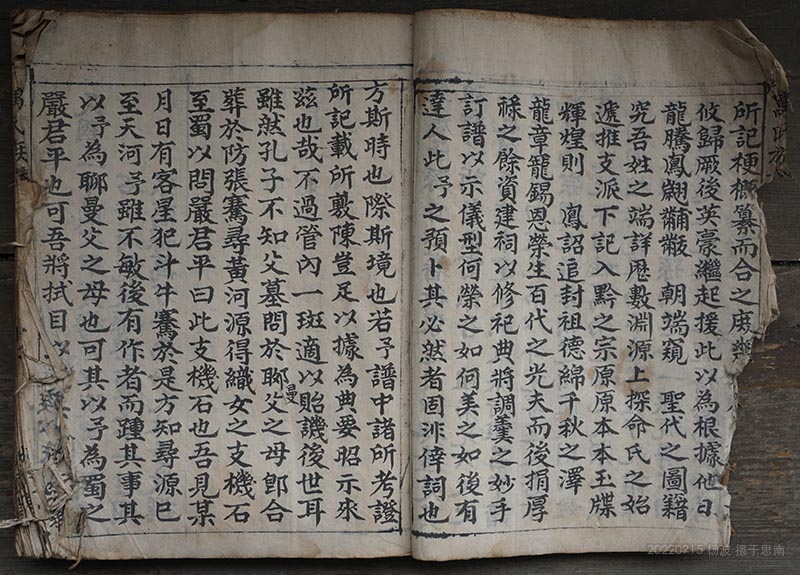 所記梗概纂而合之庶幾
攸歸厥後英豪繼起援此以為根據他日
龍騰鳳翽黼黻 朝端窺 聖代之圖籍
究吾姓之端詳歷數淵源上探命氏之始
遞推支派下記入黔之宗原原本本玉牒
輝煌則 鳳詔追封祖德綿千秋之澤
龍章寵錫恩榮生百代之光夫而後捐厚
祿之餘資建祠以修祀典將調羹之妙手
訂譜以示儀型何榮之如何美之如後有
達人此予之預卜其必然者固非倖詞也
方斯時也際斯境也若予譜中諸所考證
所記載所敷陳豈足以據為典要昭示來
茲也哉不過管內一斑適以貽譏後世耳
雖然孔子不知父墓問於聊曼父之母卽合
葬於防張騫尋黃河源得織女之支機石
至蜀以問嚴君平曰此支機石也吾見某
月日有客星犯斗牛騫於是方知尋源已
至天河予雖不敏後有作者而踵其事其
以予為聊曼父之母也可其以予為蜀之
嚴君平也可吾將拭目以
20220915 杨波 摄于思南